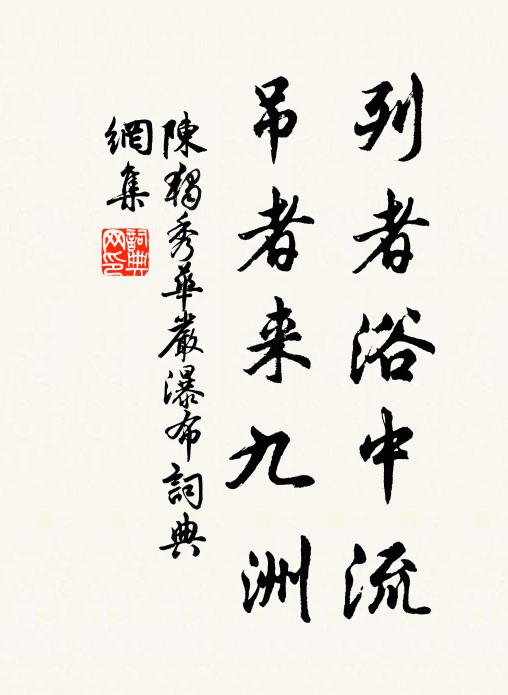 列者浴中流
吊者来九洲
陳獨秀華嚴瀑布詞典
網集
詞典網印